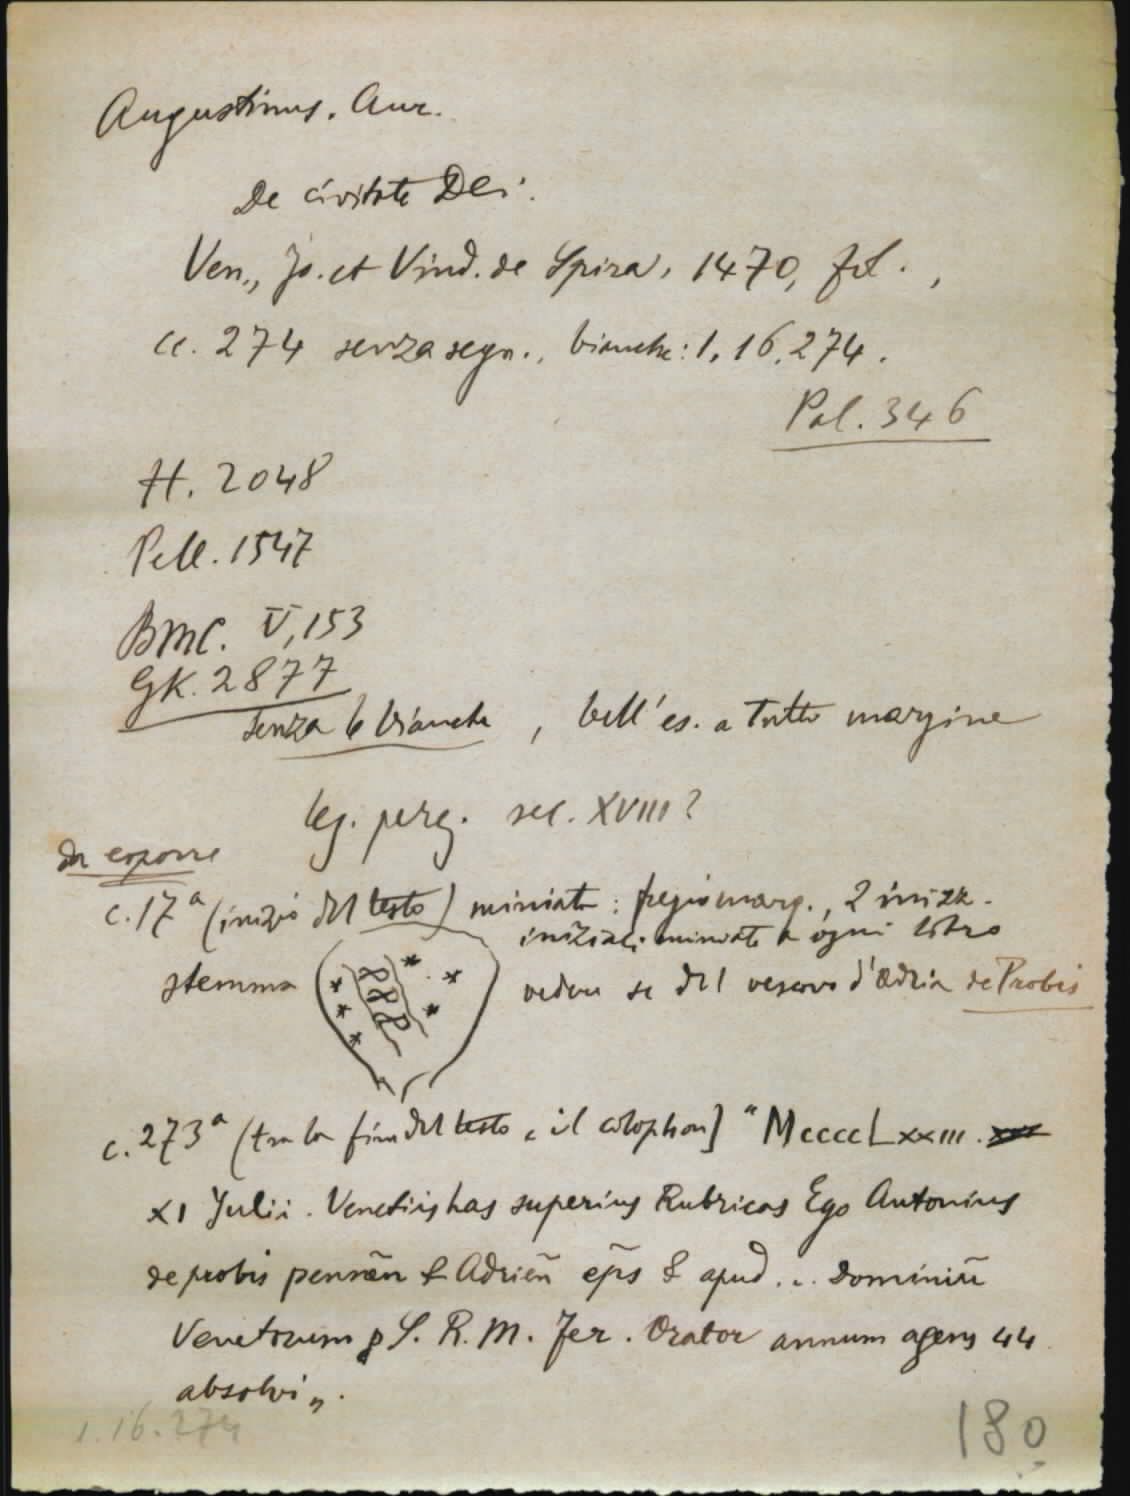 Augustinus, Aur.
De civitate Dei.
Ven., Jo. et Vind. de Spira, 1470, fol.,
cc. 274 senza segn., bianche: 1, 16, 274.
Pal. 346
H. 2048
Pell. 1547
BMC. V, 153
GK. 2877
senza le bianche, bell'es. a tutto margine
leg. perg. sec. XVIII?
da esporre
c. 17a (inizio del testo) miniata: fregio marg., 2 inizz.
iniziali miniate a ogni libro
stemma
vedere se del vescovo d'Adria de Probis
c. 273a (tra la fine del testo e il colophon) "MccccLxxiii.
XI Julii. Venetiis has superius Rubricas Ego Antonius
de probis pensãn & Adriẽn ep̃s & apud... Dominiũ
Venetorum p S. R. M. Fer. Orator annum agens 44
absolvi".
1. 16. 274
180